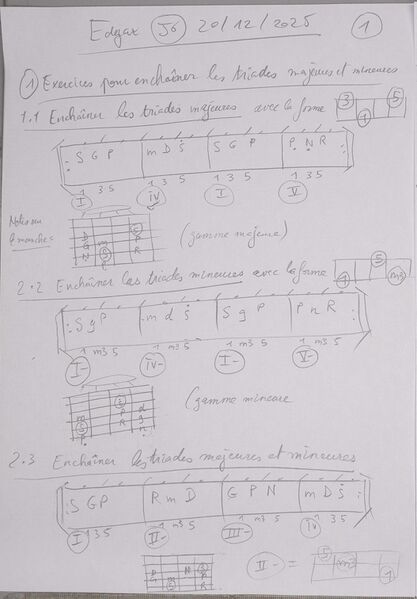 Edgar 56 20/12/2025 1
1 Exercices pour enchaîner les triades majeures et mineures
1.1 Enchaîner les triades majeures avec la forme 3 1 5
: S G P | m D Ṡ | S G P | P N R :
1 3 5 1 3 5 1 3 5 1 3 5
I IV I V
(gamme majeure)
2.2 Enchaîner les triades mineures avec la forme 1 5 m3
: S g P | m d Ṡ | S g P | P n R :
1 m3 5 1 m3 5 1 m3 5 1 m3 5
I- IV- I- V-
(gamme mineure
2.3 Enchaîner les triades majeures et mineures
S G P | R m D | G P N | m D Ṡ :
1 3 5 1 m3 5 1 m3 5 1 3 5
I II- III- IV
II- = 5 m3 1